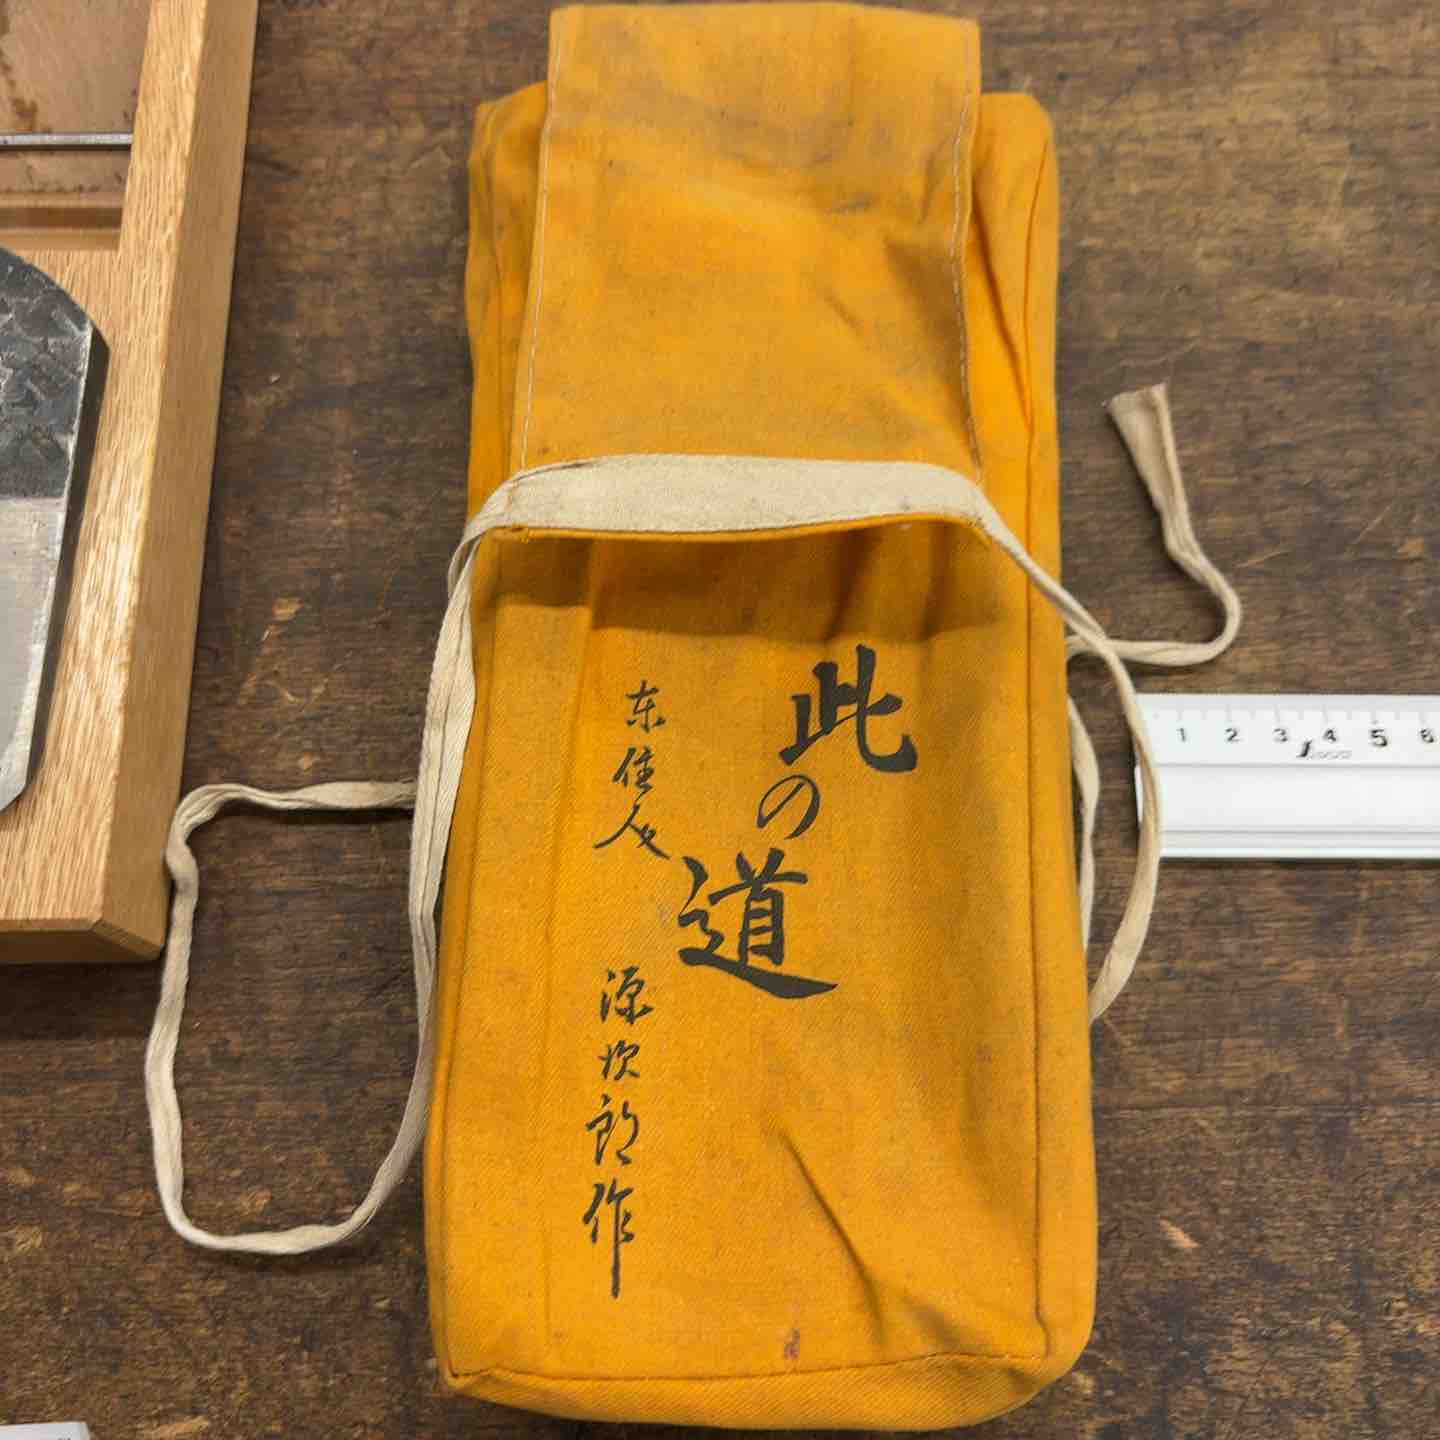 此の道
东住人
源次郎作
1 2 3 4 5 6